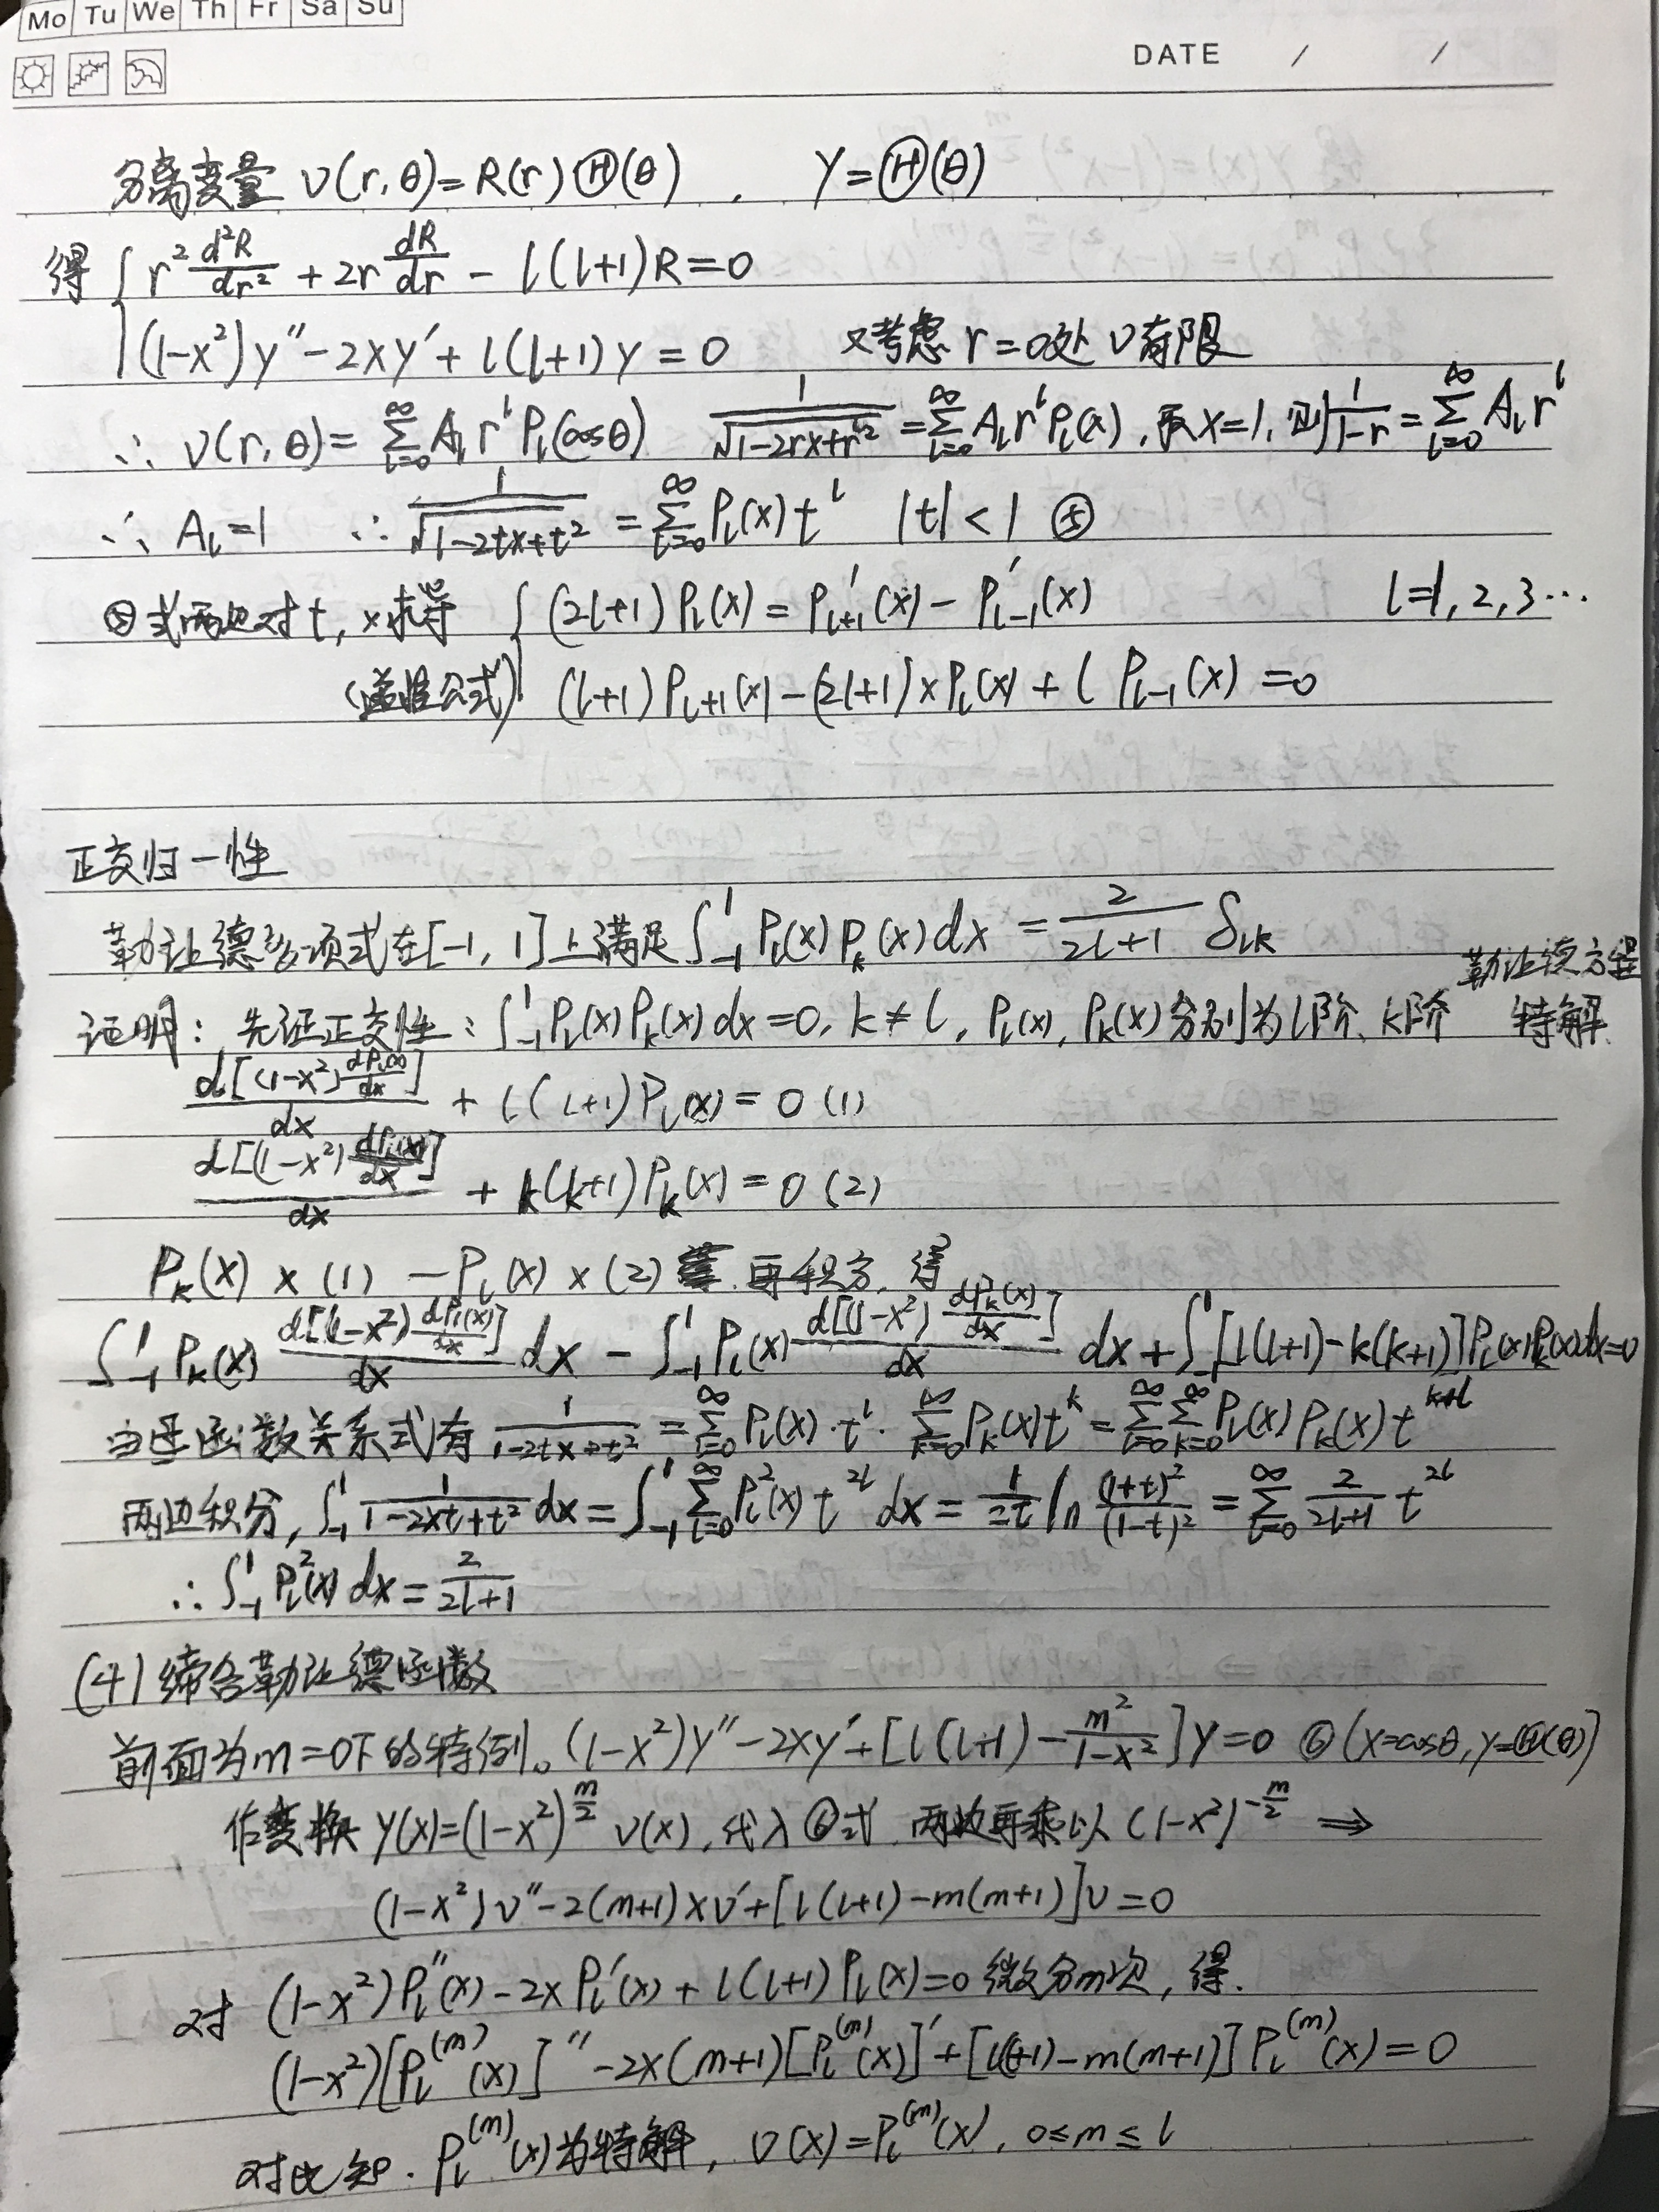 Mo Tu We Th Fr Sa Su
DATE / /
分离变量 v(r,θ)=R(r)Ⓗ(θ), y=Ⓗ(θ)
得 { r² d²R/dr² + 2r dR/dr - l(l+1)R=0
(1-x²)y''-2xy'+l(l+1)y=0 又考虑r=0处v有限
∴ v(r,θ)=∑_{l=0}^∞ A_l r^l P_l(cosθ) 1/√(1-2rx+r²)=∑_{l=0}^∞ A_l r^l P_l(x),取x=1,则1/(1-r)=∑_{l=0}^∞ A_l r^l
∴ A_l=1 ∴ 1/√(1-2tx+t²)=∑_{l=0}^∞ P_l(x)t^l |t|<1 ⑤
⑤式两边对t,x求导 { (2l+1)P_l(x)=P'_{l+1}(x)-P'_{l-1}(x) l=1,2,3…
(递推公式) (l+1)P_{l+1}(x)-(2l+1)xP_l(x)+lP_{l-1}(x)=0
正交归一性
勒让德多项式在[-1,1]上满足∫_{-1}^1 P_l(x)P_k(x)dx=2/(2l+1) δ_{lk}
证明:先证正交性:∫_{-1}^1 P_l(x)P_k(x)dx=0,k≠l,P_l(x),P_k(x)分别为l阶、k阶 勒让德方程特解.
d[(1-x²)dP_l(x)/dx]/dx + l(l+1)P_l(x)=0 (1)
d[(1-x²)dP_k(x)/dx]/dx + k(k+1)P_k(x)=0 (2)
P_k(x)×(1)-P_l(x)×(2) 再积分,得
∫_{-1}^1 P_k(x) d[(1-x²)dP_l(x)/dx]/dx dx - ∫_{-1}^1 P_l(x) d[(1-x²)dP_k(x)/dx]/dx dx + ∫_{-1}^1 [l(l+1)-k(k+1)]P_l(x)P_k(x)dx=0
由母函数关系式有 1/(1-2tx+t²)=∑_{l=0}^∞ P_l(x)·t^l·∑_{k=0}^∞ P_k(x)t^k=∑_{l=0}^∞∑_{k=0}^∞ P_l(x)P_k(x)t^{k+l}
两边积分,∫_{-1}^1 1/(1-2xt+t²) dx=∫_{-1}^1 ∑_{l=0}^∞ P_l²(x)t^{2l}dx=1/2t ln (1+t)²/(1-t)²=∑_{l=0}^∞ 2/(2l+1) t^{2l}
∴∫_{-1}^1 P_l²(x)dx=2/(2l+1)
(4)缔合勒让德函数
前面为m=0下的特例。(1-x²)y''-2xy'+[l(l+1)-m²/(1-x²)]y=0 ⑥(x=cosθ,y=Ⓗ(θ))
作变换 y(x)=(1-x²)^{m/2} v(x),代入⑥式,两边再乘以(1-x²)^{-m/2} ⇒
(1-x²)v''-2(m+1)xv'+[l(l+1)-m(m+1)]v=0
对 (1-x²)P_l''(x)-2xP_l'(x)+l(l+1)P_l(x)=0微分m次,得.
(1-x²)[P_l^{(m)}(x)]''-2x(m+1)[P_l^{(m)}(x)]'+[l(l+1)-m(m+1)]P_l^{(m)}(x)=0
对比知.P_l^{(m)}(x)为特解,v(x)=P_l^{(m)}(x),0≤m≤l